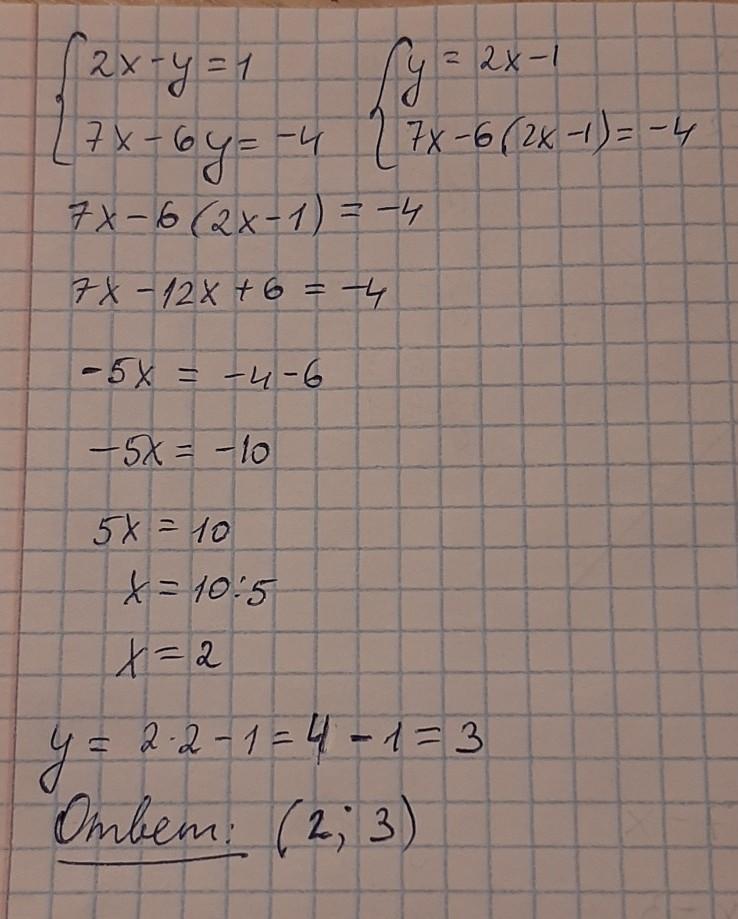 {2x-y=1 {y = 2x-1
{7x-6y=-4 {7x-6(2x-1)=-4
7x-6(2x-1)=-4
7x-12x+6=-4
-5x = -4-6
-5x=-10
5x=10
x=10:5
x=2
y= 2·2-1=4-1=3
Ответ: (2; 3)